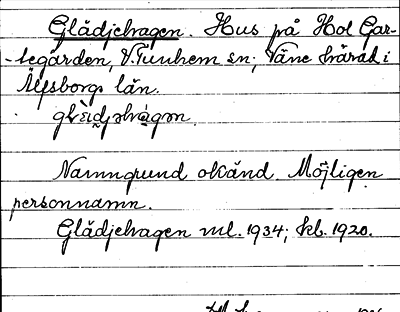 Glädjehagen. Hus på Hol Gar-
-tegården, V. Tunhem sn; Väne härad i
Älfsborgs län.
Namngrund okänd. Möjligen
personnamn.
Glädjehagen ml. 1934; kb. 1920.